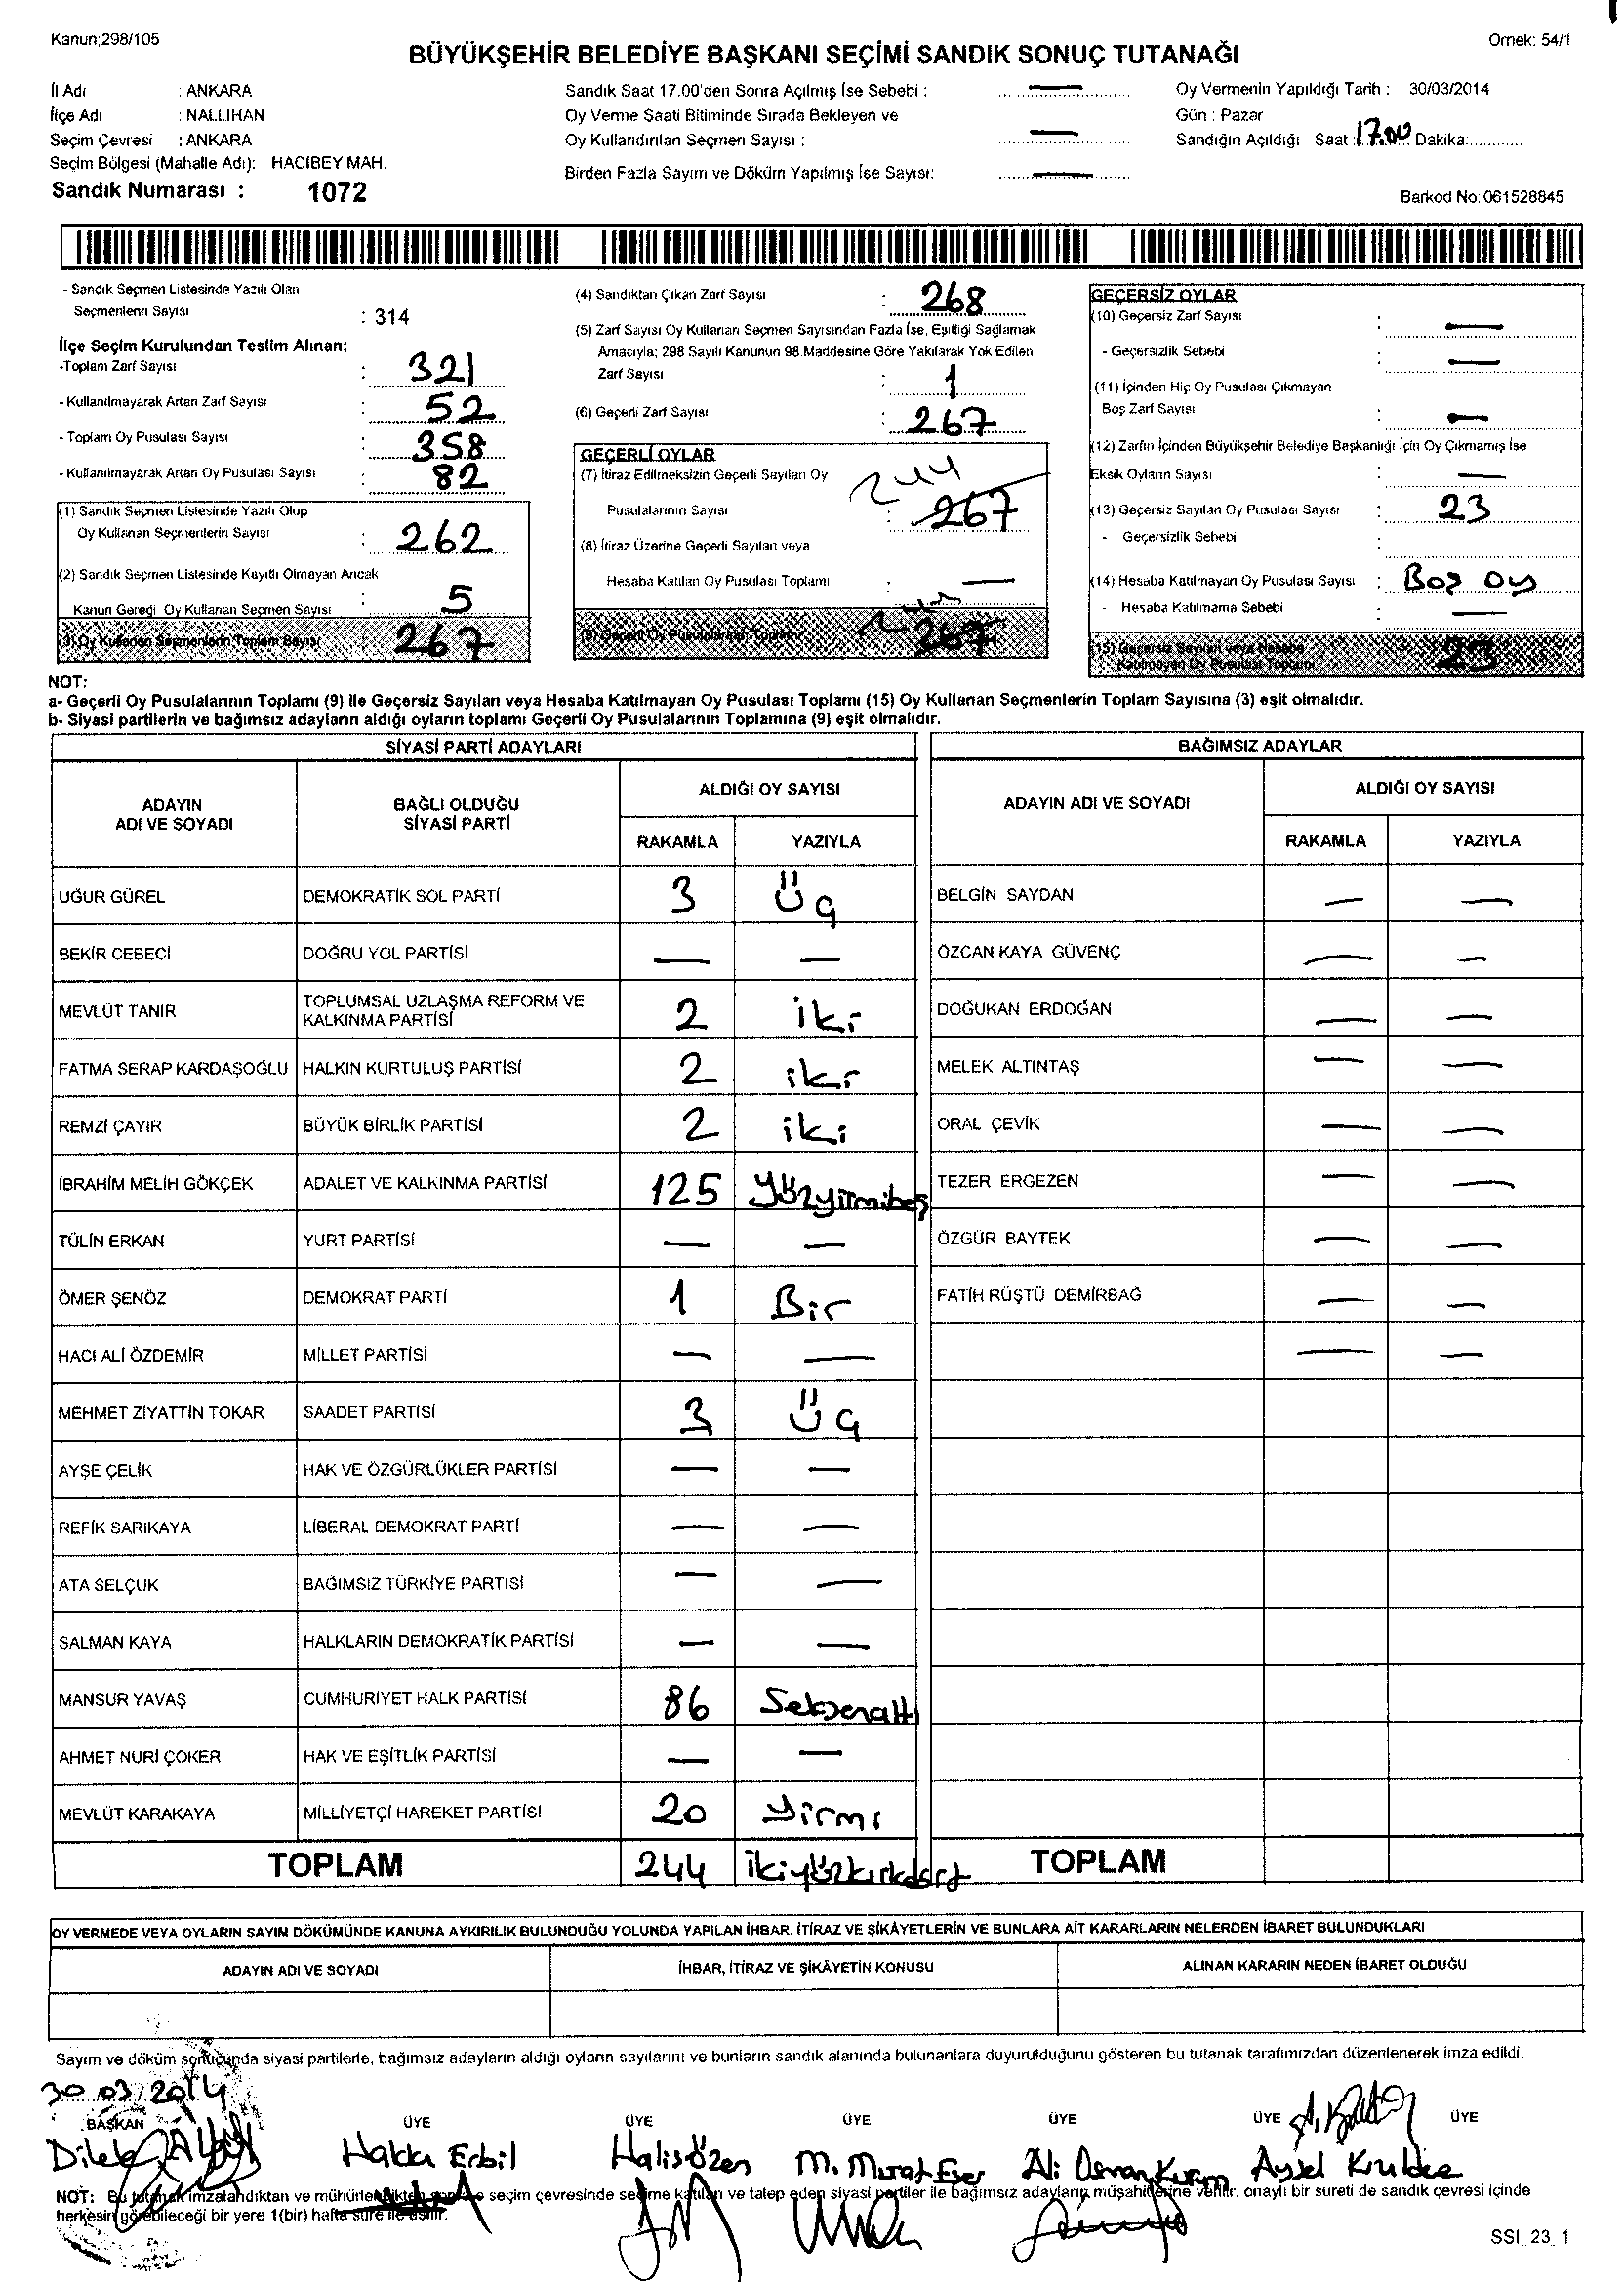 Kanun;298/105
Örnek: 54/1
BÜYÜKŞEHİR BELEDİYE BAŞKANI SEÇİMİ SANDIK SONUÇ TUTANAĞI
İl Adı : ANKARA
İlçe Adı : NALLIHAN
Seçim Çevresi : ANKARA
Seçim Bölgesi (Mahalle Adı): HACIBEY MAH.
Sandık Numarası : 1072
Sandık Saat 17.00'den Sonra Açılmış İse Sebebi : —
Oy Verme Saati Bitiminde Sırada Bekleyen ve
Oy Kullandırılan Seçmen Sayısı : —
Birden Fazla Sayım ve Döküm Yapılmış İse Sayısı: —
Oy Vermenin Yapıldığı Tarih : 30/03/2014
Gün : Pazar
Sandığın Açıldığı Saat : 17.00 Dakika:
Barkod No: 061528845
- Sandık Seçmen Listesinde Yazılı Olan
Seçmenlerin Sayısı : 314
İlçe Seçim Kurulundan Teslim Alınan;
-Toplam Zarf Sayısı : 321
- Kullanılmayarak Artan Zarf Sayısı : 52
- Toplam Oy Pusulası Sayısı : 358
- Kullanılmayarak Artan Oy Pusulası Sayısı : 82
(1) Sandık Seçmen Listesinde Yazılı Olup
Oy Kullanan Seçmenlerin Sayısı : 262
(2) Sandık Seçmen Listesinde Kayıtlı Olmayan Ancak
Kanun Geregi Oy Kullanan Seçmen Sayısı : 5
(3) Oy Kullanan Seçmenlerin Toplam Sayısı 267
(4) Sandıktan Çıkan Zarf Sayısı : 268
(5) Zarf Sayısı Oy Kullanan Seçmen Sayısından Fazla İse, Eşitliği Sağlamak
Amacıyla; 298 Sayılı Kanunun 98.Maddesine Göre Yakılarak Yok Edilen
Zarf Sayısı : 1
(6) Geçerli Zarf Sayısı : 267
GEÇERLİ OYLAR
(7) İtiraz Edilmeksizin Geçerli Sayılan Oy
Pusulalarının Sayısı : 267 244
(8) İtiraz Üzerine Geçerli Sayılan veya
Hesaba Katılan Oy Pusulası Toplamı : —
(9) Geçerli Oy Pusulalarının Toplamı 267 244
GEÇERSİZ OYLAR
(10) Geçersiz Zarf Sayısı : —
- Geçersizlik Sebebi : —
(11) İçinden Hiç Oy Pusulası Çıkmayan
Boş Zarf Sayısı : —
(12) Zarfın İçinden Büyükşehir Belediye Başkanlığı İçin Oy Çıkmamış İse
Eksik Oyların Sayısı : —
(13) Geçersiz Sayılan Oy Pusulası Sayısı : 23
- Geçersizlik Sebebi :
(14) Hesaba Katılmayan Oy Pusulası Sayısı : Boş oy
- Hesaba Katılmama Sebebi : —
(15) Geçersiz Sayılan veya Hesaba
Katılmayan Oy Pusulası Toplamı 23
NOT:
a- Geçerli Oy Pusulalarının Toplamı (9) ile Geçersiz Sayılan veya Hesaba Katılmayan Oy Pusulası Toplamı (15) Oy Kullanan Seçmenlerin Toplam Sayısına (3) eşit olmalıdır.
b- Siyasi partilerin ve bağımsız adayların aldığı oyların toplamı Geçerli Oy Pusulalarının Toplamına (9) eşit olmalıdır.
SİYASİ PARTİ ADAYLARI
BAĞIMSIZ ADAYLAR
ADAYIN ADI VE SOYADI
BAĞLI OLDUĞU SİYASİ PARTİ
ALDIĞI OY SAYISI
RAKAMLA YAZIYLA
ADAYIN ADI VE SOYADI
ALDIĞI OY SAYISI
RAKAMLA YAZIYLA
UĞUR GÜREL DEMOKRATİK SOL PARTİ 3 Üç BELGİN SAYDAN — —
BEKİR CEBECİ DOĞRU YOL PARTİSİ — — ÖZCAN KAYA GÜVENÇ — —
MEVLÜT TANIR TOPLUMSAL UZLAŞMA REFORM VE KALKINMA PARTİSİ 2 iki DOĞUKAN ERDOĞAN — —
FATMA SERAP KARDAŞOĞLU HALKIN KURTULUŞ PARTİSİ 2 iki MELEK ALTINTAŞ — —
REMZİ ÇAYIR BÜYÜK BİRLİK PARTİSİ 2 iki ORAL ÇEVİK — —
İBRAHİM MELİH GÖKÇEK ADALET VE KALKINMA PARTİSİ 125 Yüzyirmibeş TEZER ERGEZEN — —
TÜLİN ERKAN YURT PARTİSİ — — ÖZGÜR BAYTEK — —
ÖMER ŞENÖZ DEMOKRAT PARTİ 1 Bir FATİH RÜŞTÜ DEMİRBAĞ — —
HACI ALİ ÖZDEMİR MİLLET PARTİSİ — — — —
MEHMET ZİYATTİN TOKAR SAADET PARTİSİ 3 Üç
AYŞE ÇELİK HAK VE ÖZGÜRLÜKLER PARTİSİ — —
REFİK SARIKAYA LİBERAL DEMOKRAT PARTİ — —
ATA SELÇUK BAĞIMSIZ TÜRKİYE PARTİSİ — —
SALMAN KAYA HALKLARIN DEMOKRATİK PARTİSİ — —
MANSUR YAVAŞ CUMHURİYET HALK PARTİSİ 86 Seksenaltı
AHMET NURİ ÇOKER HAK VE EŞİTLİK PARTİSİ — —
MEVLÜT KARAKAYA MİLLİYETÇİ HAREKET PARTİSİ 20 Yirmi
TOPLAM 244 ikiyüzkırkdört TOPLAM
OY VERMEDE VEYA OYLARIN SAYIM DÖKÜMÜNDE KANUNA AYKIRILIK BULUNDUĞU YOLUNDA YAPILAN İHBAR, İTİRAZ VE ŞİKÂYETLERİN VE BUNLARA AİT KARARLARIN NELERDEN İBARET BULUNDUKLARI
ADAYIN ADI VE SOYADI İHBAR, İTİRAZ VE ŞİKÂYETİN KONUSU ALINAN KARARIN NEDEN İBARET OLDUĞU
Sayım ve döküm sonucunda siyasi partilerle, bağımsız adayların aldığı oyların sayılarını ve bunların sandık alanında bulunanlara duyurulduğunu gösteren bu tutanak tarafımızdan düzenlenerek imza edildi.
30.03/2014
BAŞKAN ÜYE ÜYE ÜYE ÜYE ÜYE ÜYE
Dilek Hakkı Erbil Halis Özen M. Murat Eser Ali Osman Aysel
NOT: Bu tutanak imzalandıktan ve mühürlendikten sonra seçim çevresinde seçime katılan ve talep eden siyasi partiler ile bağımsız adayların müşahitlerine verilir, onaylı bir sureti de sandık çevresi içinde
herkesin görebileceği bir yere 1(bir) hafta süre ile asılır.
SSI_23_1